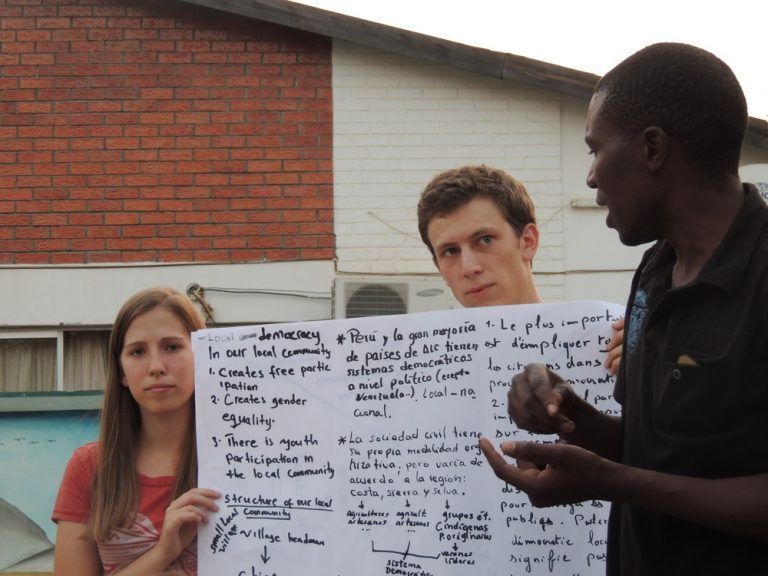 - Local democracy
In our local community
1. Creates free partic
ipation
2. Creates gender
equality.
3. There is youth
participation in
the local community
structure of our local
community
small local
village
village headman
* Perú y la gran mayoría
de países de ALC tienen
sistemas democráticos
a nivel político (excepto
Venezuela-). Local - na
cional.
* La sociedad civil tiene
su propia modalidad orga
nizativa; pero varía de
acuerdo a la región:
costa, sierra y selva.
agricultores
artesanos
agricult
artesanos
grupos ét.
C. indígenas
P. originarios
varones
líderes
sistema
Democrát
1. Le plus import
est d'empliquer
les citoyens dans
démocrati
2.
sur
publiqs. Poster
démocratie loc
signifie pas